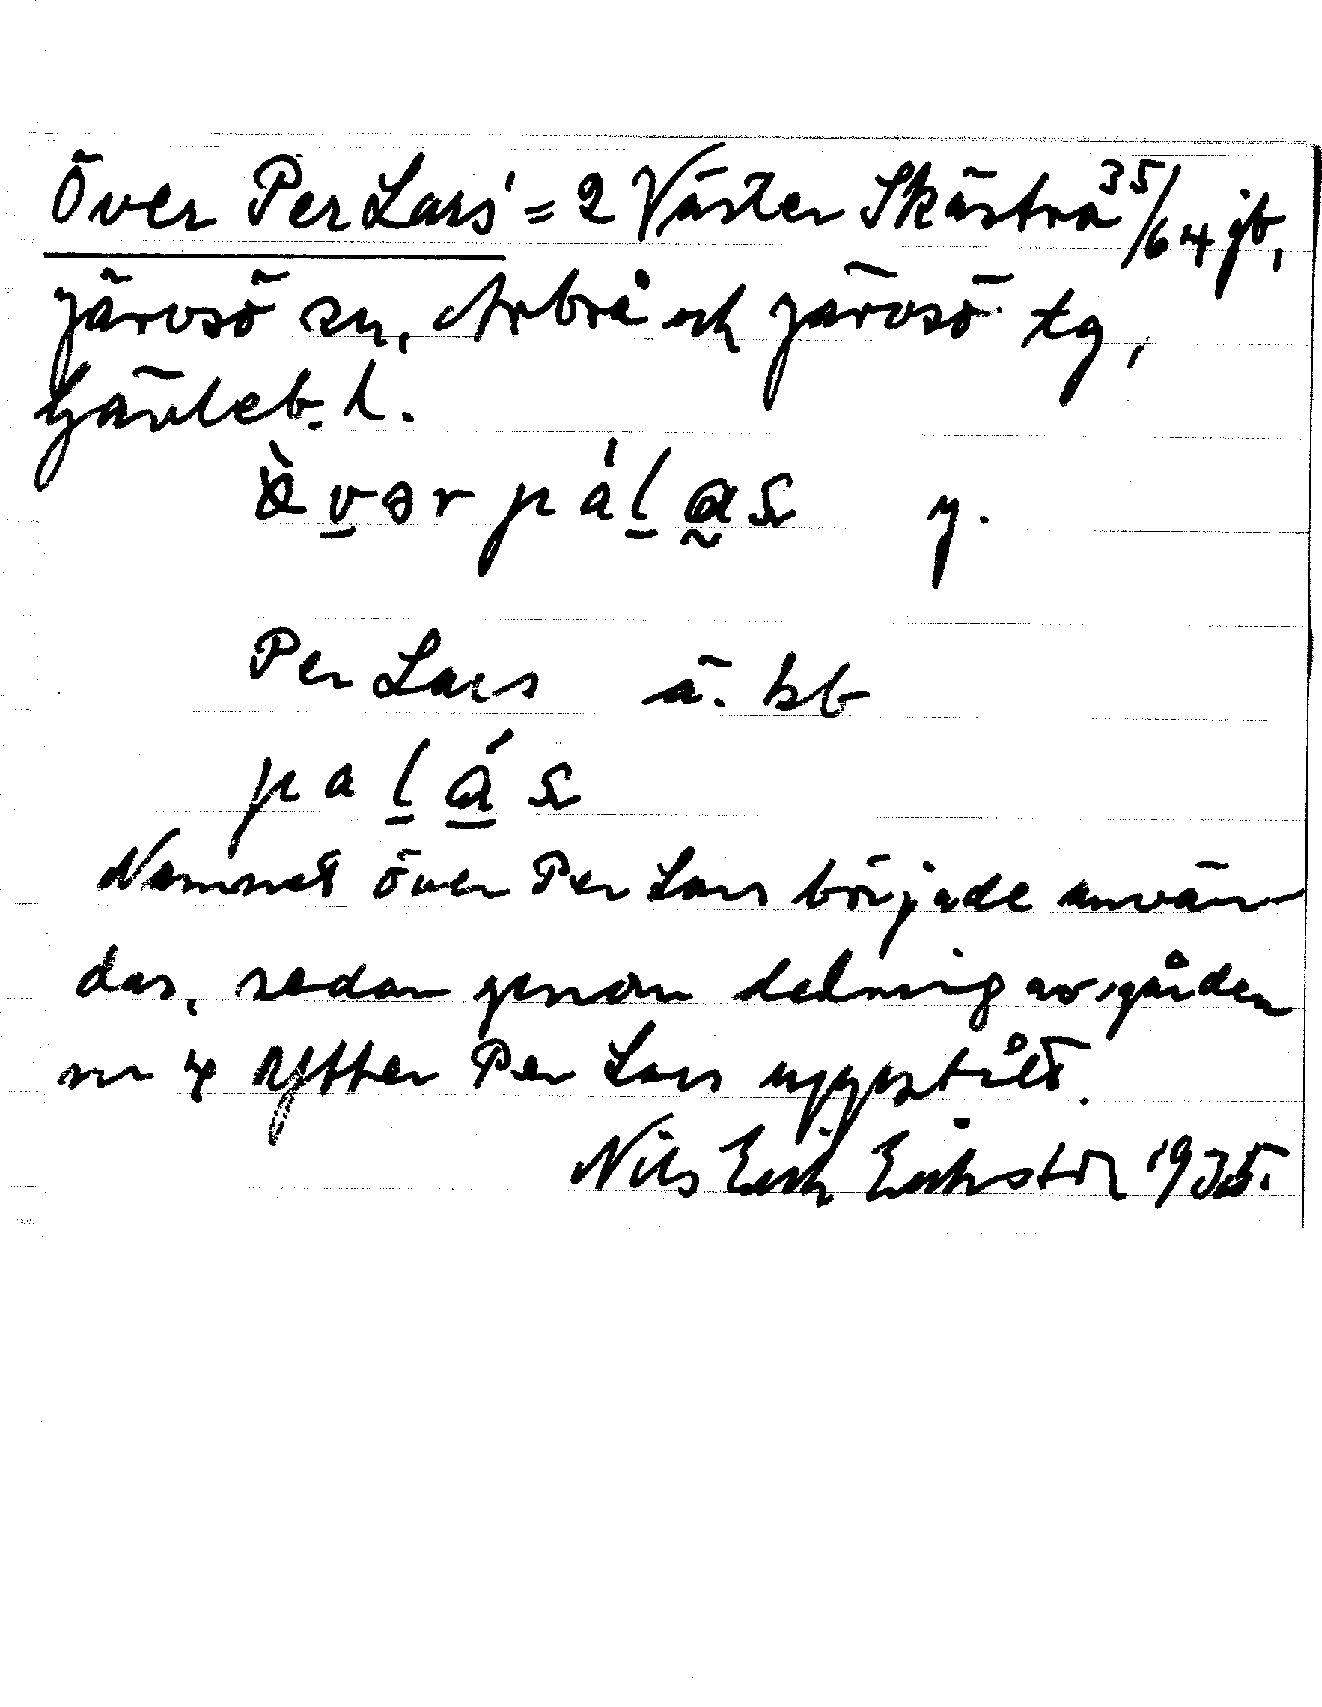 Över Per Lars' = 2 Väster Skästra 35/64 jb,
Järvsö sn, Arbrå och Järvsö tg,
Gävleb. l.
y.
Per Lars ä. kb
Namnet över Per Lars började använ-
das, sedan genom delning av gården
nr 4 Ytter Per Lars uppstått.
Nils Erik Eriksson 1935.